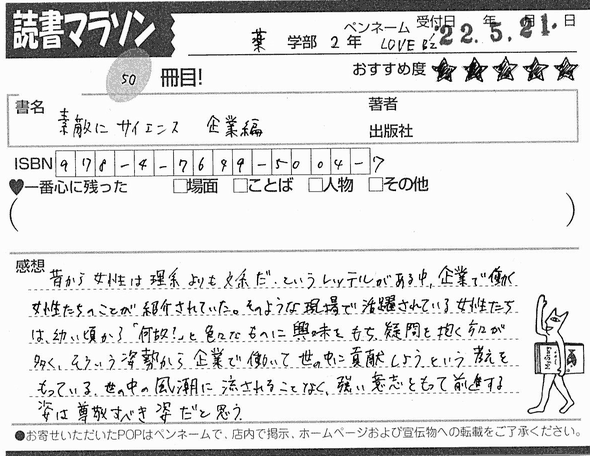 読書マラソン
薬 学部 2 年 ペンネーム LOVE B'z 受付日 年 月 日
22.5.21.
50 冊目!
おすすめ度 ★★★★★
書名 素敵に サイエンス 企業編
著者
出版社
ISBN 978-4-7649-5004-7
♥一番心に残った □場面 □ことば □人物 □その他
( )
感想 昔から 女性は 理系 よりも 文系 だ、という レッテル がある中、企業で 働く
女性たちのことが 紹介されていた。そのような 現場で 活躍されている 女性たち
は、幼い頃から「何故?」と 色々なものに 興味を もち、疑問を 抱く方々が
多く、そういう 姿勢から 企業で 働いて 世の中に 貢献しよう という 考えを
もっている。世の中の 風潮に 流されることなく、強い 意志を もって 前進する
姿は 尊敬すべき 姿 だと 思う。
●お寄せいただいたPOPはペンネームで、店内で掲示、ホームページおよび宣伝物への転載をご了承ください。